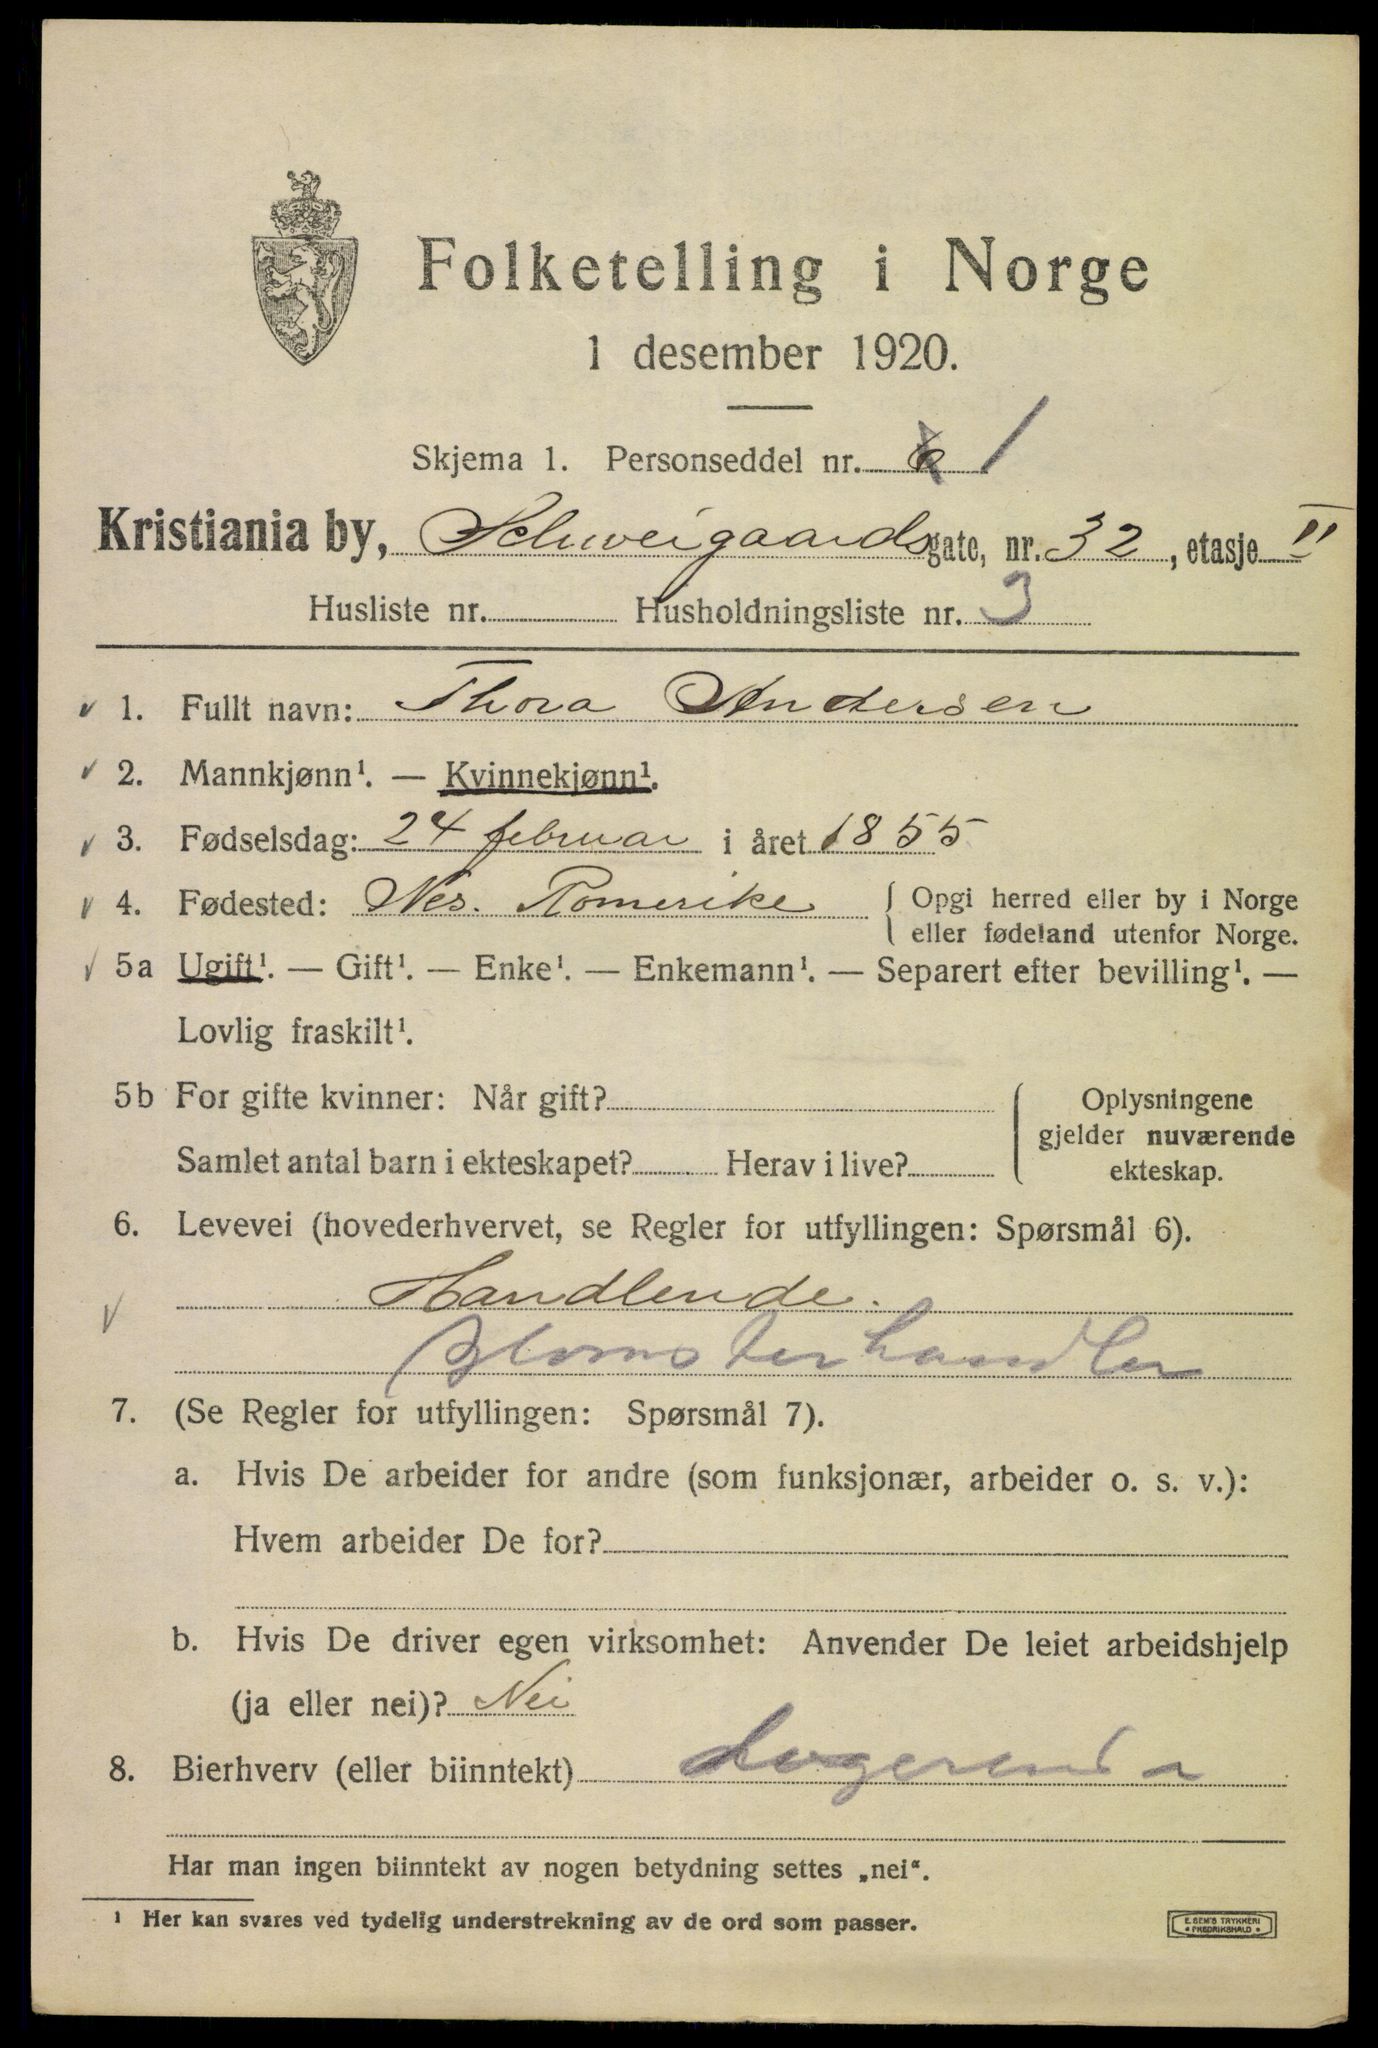 Folketelling i Norge
1 desember 1920.
Skjema 1. Personseddel nr. 6 1
Kristiania by, Schweigaardsgate, nr. 32, etasje II
Husliste nr. Husholdningsliste nr. 3
1. Fullt navn: Thora Andersen
2. Mannkjønn¹. — Kvinnekjønn¹.
3. Fødselsdag: 24 februar i året 1855
4. Fødested: Nes. Romerike { Opgi herred eller by i Norge
eller fødeland utenfor Norge.
5a Ugift¹. — Gift¹. — Enke¹. — Enkemann¹. — Separert efter bevilling¹. —
Lovlig fraskilt¹.
5b For gifte kvinner: Når gift?
Samlet antal barn i ekteskapet? Herav i live?
Oplysningene
gjelder nuværende
ekteskap.
6. Levevei (hovederhvervet, se Regler for utfyllingen: Spørsmål 6).
Handlende.
Blomsterhandler
7. (Se Regler for utfyllingen: Spørsmål 7).
a. Hvis De arbeider for andre (som funksjonær, arbeider o. s. v.):
Hvem arbeider De for?
b. Hvis De driver egen virksomhet: Anvender De leiet arbeidshjelp
(ja eller nei)? Nei
8. Bierhverv (eller biinntekt)
Har man ingen biinntekt av nogen betydning settes „nei“.
¹ Her kan svares ved tydelig understrekning av de ord som passer.
E. SEM'S TRYKKERI
* FREDRIKSHALD *